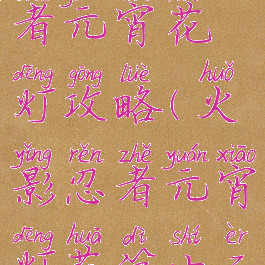 者元宵花
dēng gōng lüè huǒ
灯攻略(火
yǐng rěn zhě yuán xiāo
影忍者元宵
dēng huā dì shí èr
灯花